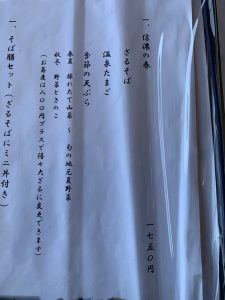 一、信濃の春 一七五〇円
ざるそば
温泉たまご
季節の天ぷら
春夏 採れたて山菜 ～ 旬の地元夏野菜
秋冬 野菜ときのこ
(お蕎麦は八〇〇円プラスで得々大ざるに変更できます)
一、そば膳セット(ざるそばにミニ丼付き)